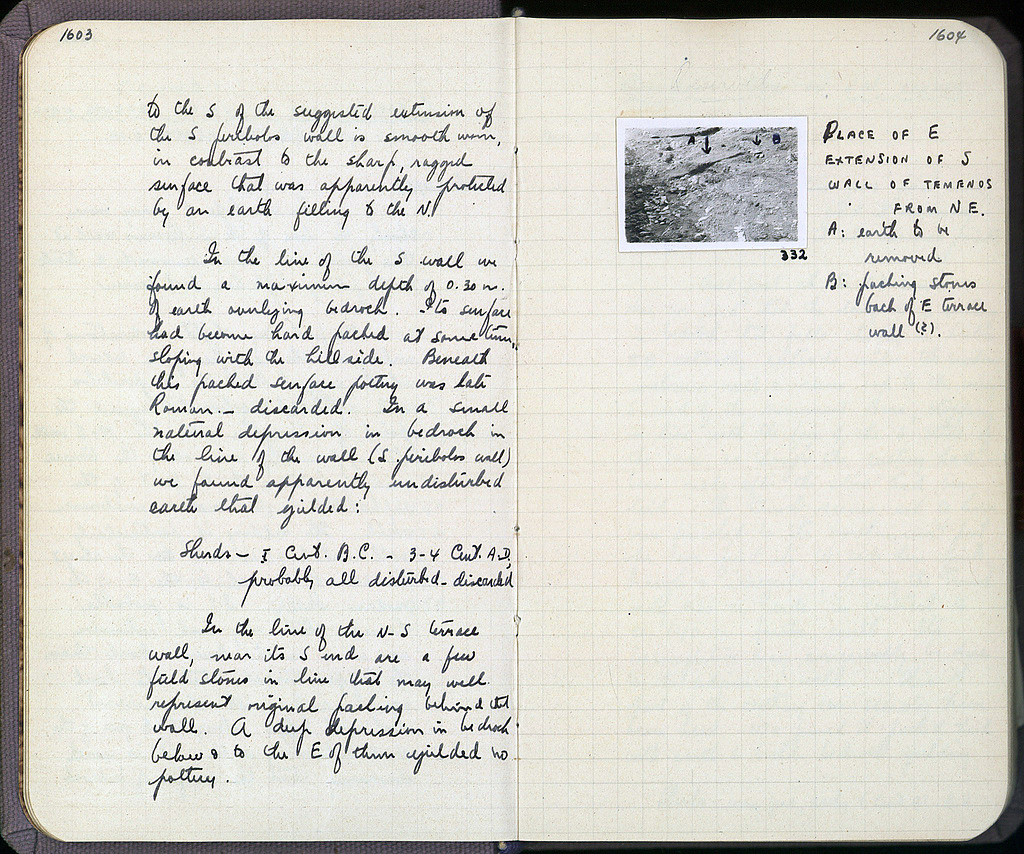 1603
to the S of the suggested extension of
the S peribolos wall is smooth worn,
in contrast to the sharp, ragged
surface that was apparently protected
by an earth filling to the N.
In the line of the S wall we
found a maximum depth of 0.30 m.
of earth overlying bedrock. Its surface
had become hard packed at some time,
sloping with the hillside. Beneath
this packed surface pottery was late
Roman - discarded. In a small
natural depression in bedrock in
the line of the wall (S. peribolos wall)
we found apparently undisturbed
earth that yielded:
Sherds - I Cent. B.C. - 3-4 Cent. A.D.,
probably all disturbed - discarded
In the line of the N-S terrace
wall, near its S end are a few
field stones in line that may well
represent original packing behind that
wall. A deep depression in bedrock
below & to the E of them yielded no
pottery.
1604
A B
332
PLACE OF E
EXTENSION OF S
WALL OF TEMENOS
FROM NE.
A: earth to be
removed
B: packing stones
back of E terrace
wall (?).